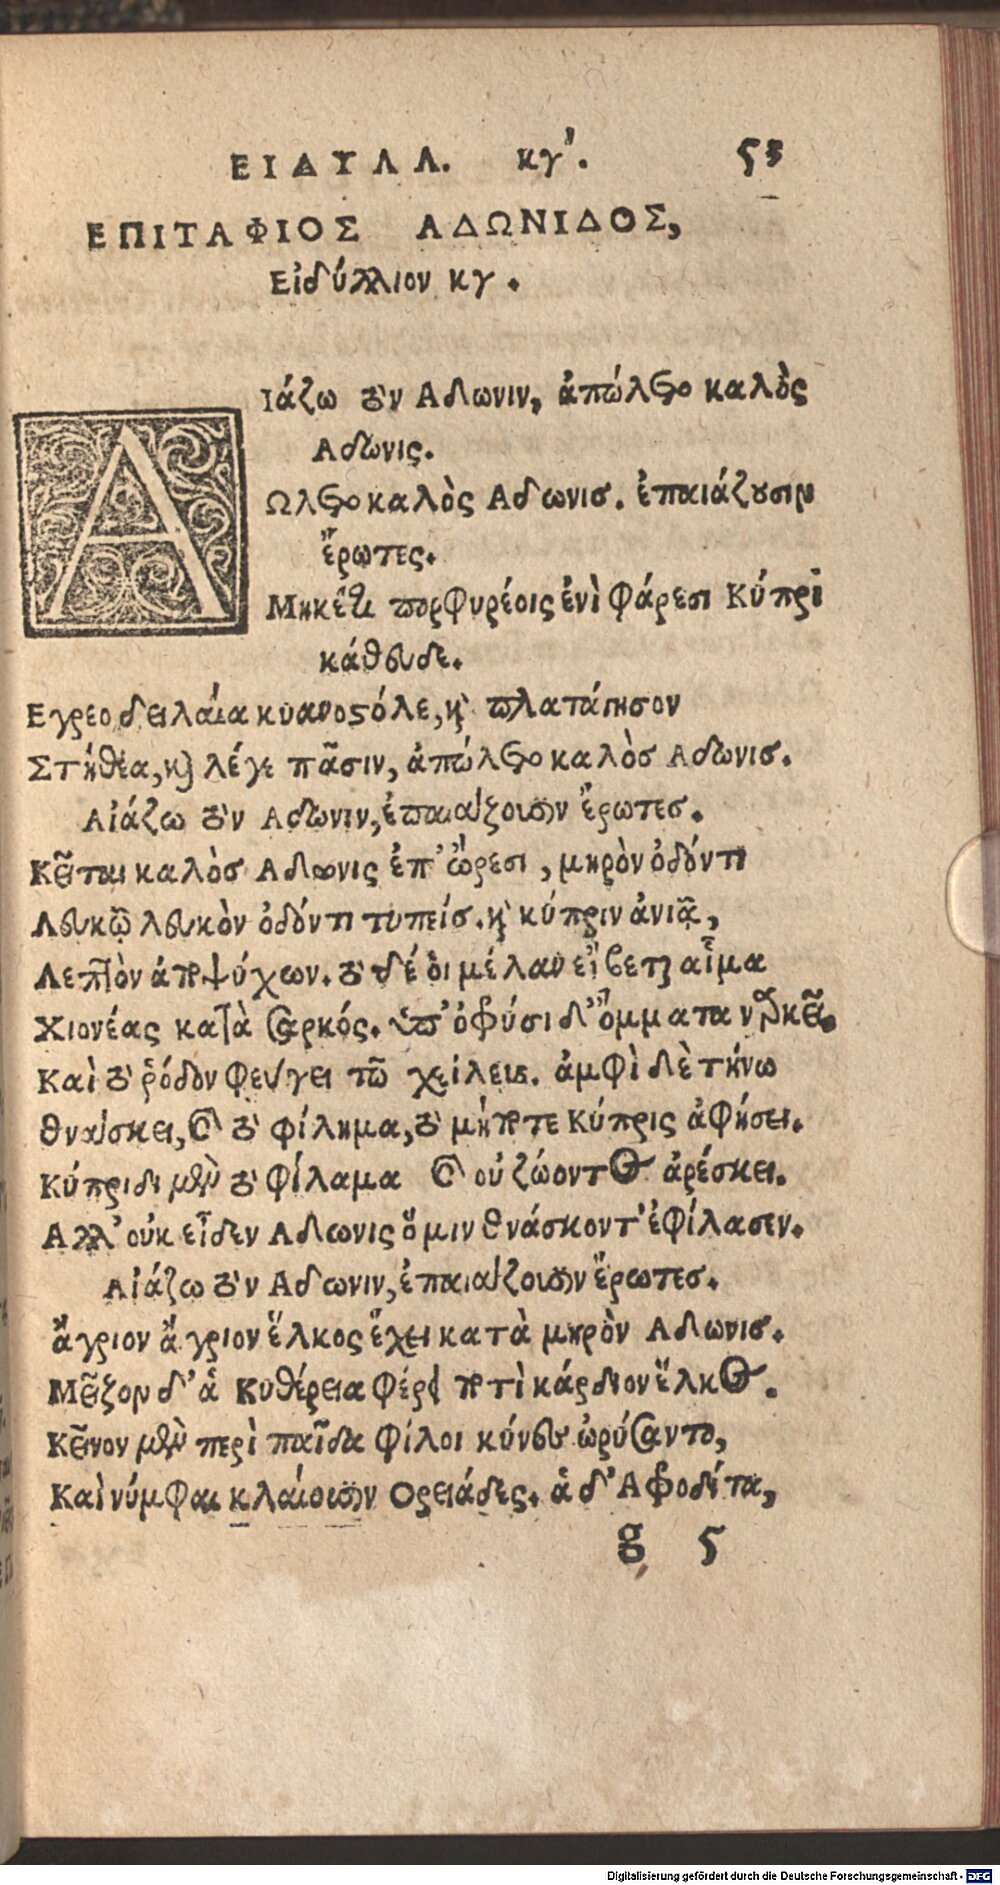 ΕΙΔΥΛΛ. κγ'. 53
ΕΠΙΤΑΦΙΟΣ ΑΔΩΝΙΔΟΣ,
Εἰδύλλιον κγ.
Αιάζω τὸν Αδωνιν, ἀπώλετο καλὸς
Αδωνις.
Ωλετο καλὸς Αδωνισ. ἐπαιάζουσιν
ἔρωτες.
Μηκέτι πορφυρέοις ἐνὶ φάρεσι Κύπρι
κάθευδε.
Εγρεο δειλαία κυανοστόλε, καὶ πλατάγησον
Στήθεα, καὶ λέγε πᾶσιν, ἀπώλετο καλὸσ Αδωνισ.
Αἰάζω τὸν Αδωνιν, ἐπαιάζουσιν ἔρωτεσ.
Κεῖται καλὸσ Αδωνις ἐπ' ὤρεσι, μηρὸν ὀδόντι
Λευκῷ λευκὸν ὀδόντι τυπείσ. καὶ κύπριν ἀνιᾷ,
Λεπτὸν ἀποψύχων. τὸ δέ ὁι μέλαν εἴβεται αἷμα
Χιονέας κατὰ σαρκός. ὑπ' ὀφρύσι δ' ὄμματα ναρκεᾶ.
Καὶ τὸ ῥόδον φεύγει τῶ χείλεος. ἀμφὶ δὲ τήνω
θνάσκει, καὶ τὸ φίλημα, τὸ μήποτε Κύπρις ἀφήσει.
Κύπριδι μὲν τὸ φίλαμα καὶ οὐ ζώοντος ἀρέσκει.
Αλλ' οὐκ εἶδεν Αδωνις ὅ μιν θνάσκοντ' ἐφίλασεν.
Αἰάζω τὸν Αδωνιν, ἐπαιάζουσιν ἔρωτεσ.
ἄγριον ἄγριον ἕλκος ἔχει κατὰ μηρὸν Αδωνισ.
Μεῖζον δ' ἁ Κυθέρεια φέρει ποτὶ κάρδιον ἕλκος.
Κεῖνον μὲν περὶ παῖδα φίλοι κύνες ὠρύσαντο,
Καὶ νύμφαι κλαίουσιν Ορειάδες. ἁ δ' Αφροδίτα,
g 5
Digitalisierung gefördert durch die Deutsche Forschungsgemeinschaft - DFG